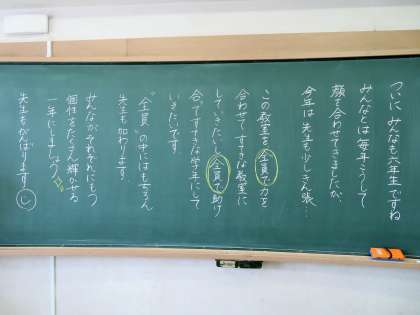 ついに みんなも六年生ですね
みんなとは毎年こうして
顔を合わせてきましたが、
今年は 先生も少しきん張…
この教室を全員で力を
合わせてすてきな教室に
していきたいし、全員で助け
合ってすてきな学年にして
いきたいです
"全員"の中にはもちろん
先生も加わります。
みんながそれぞれにもつ
個性をたくさん輝かせる
一年にしましょう
先生もがんばります!